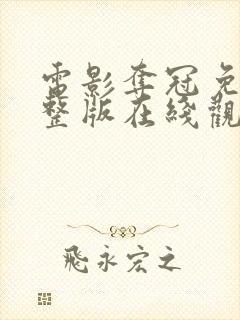 電影奪冠免
整版在綫觀
飛永宏之